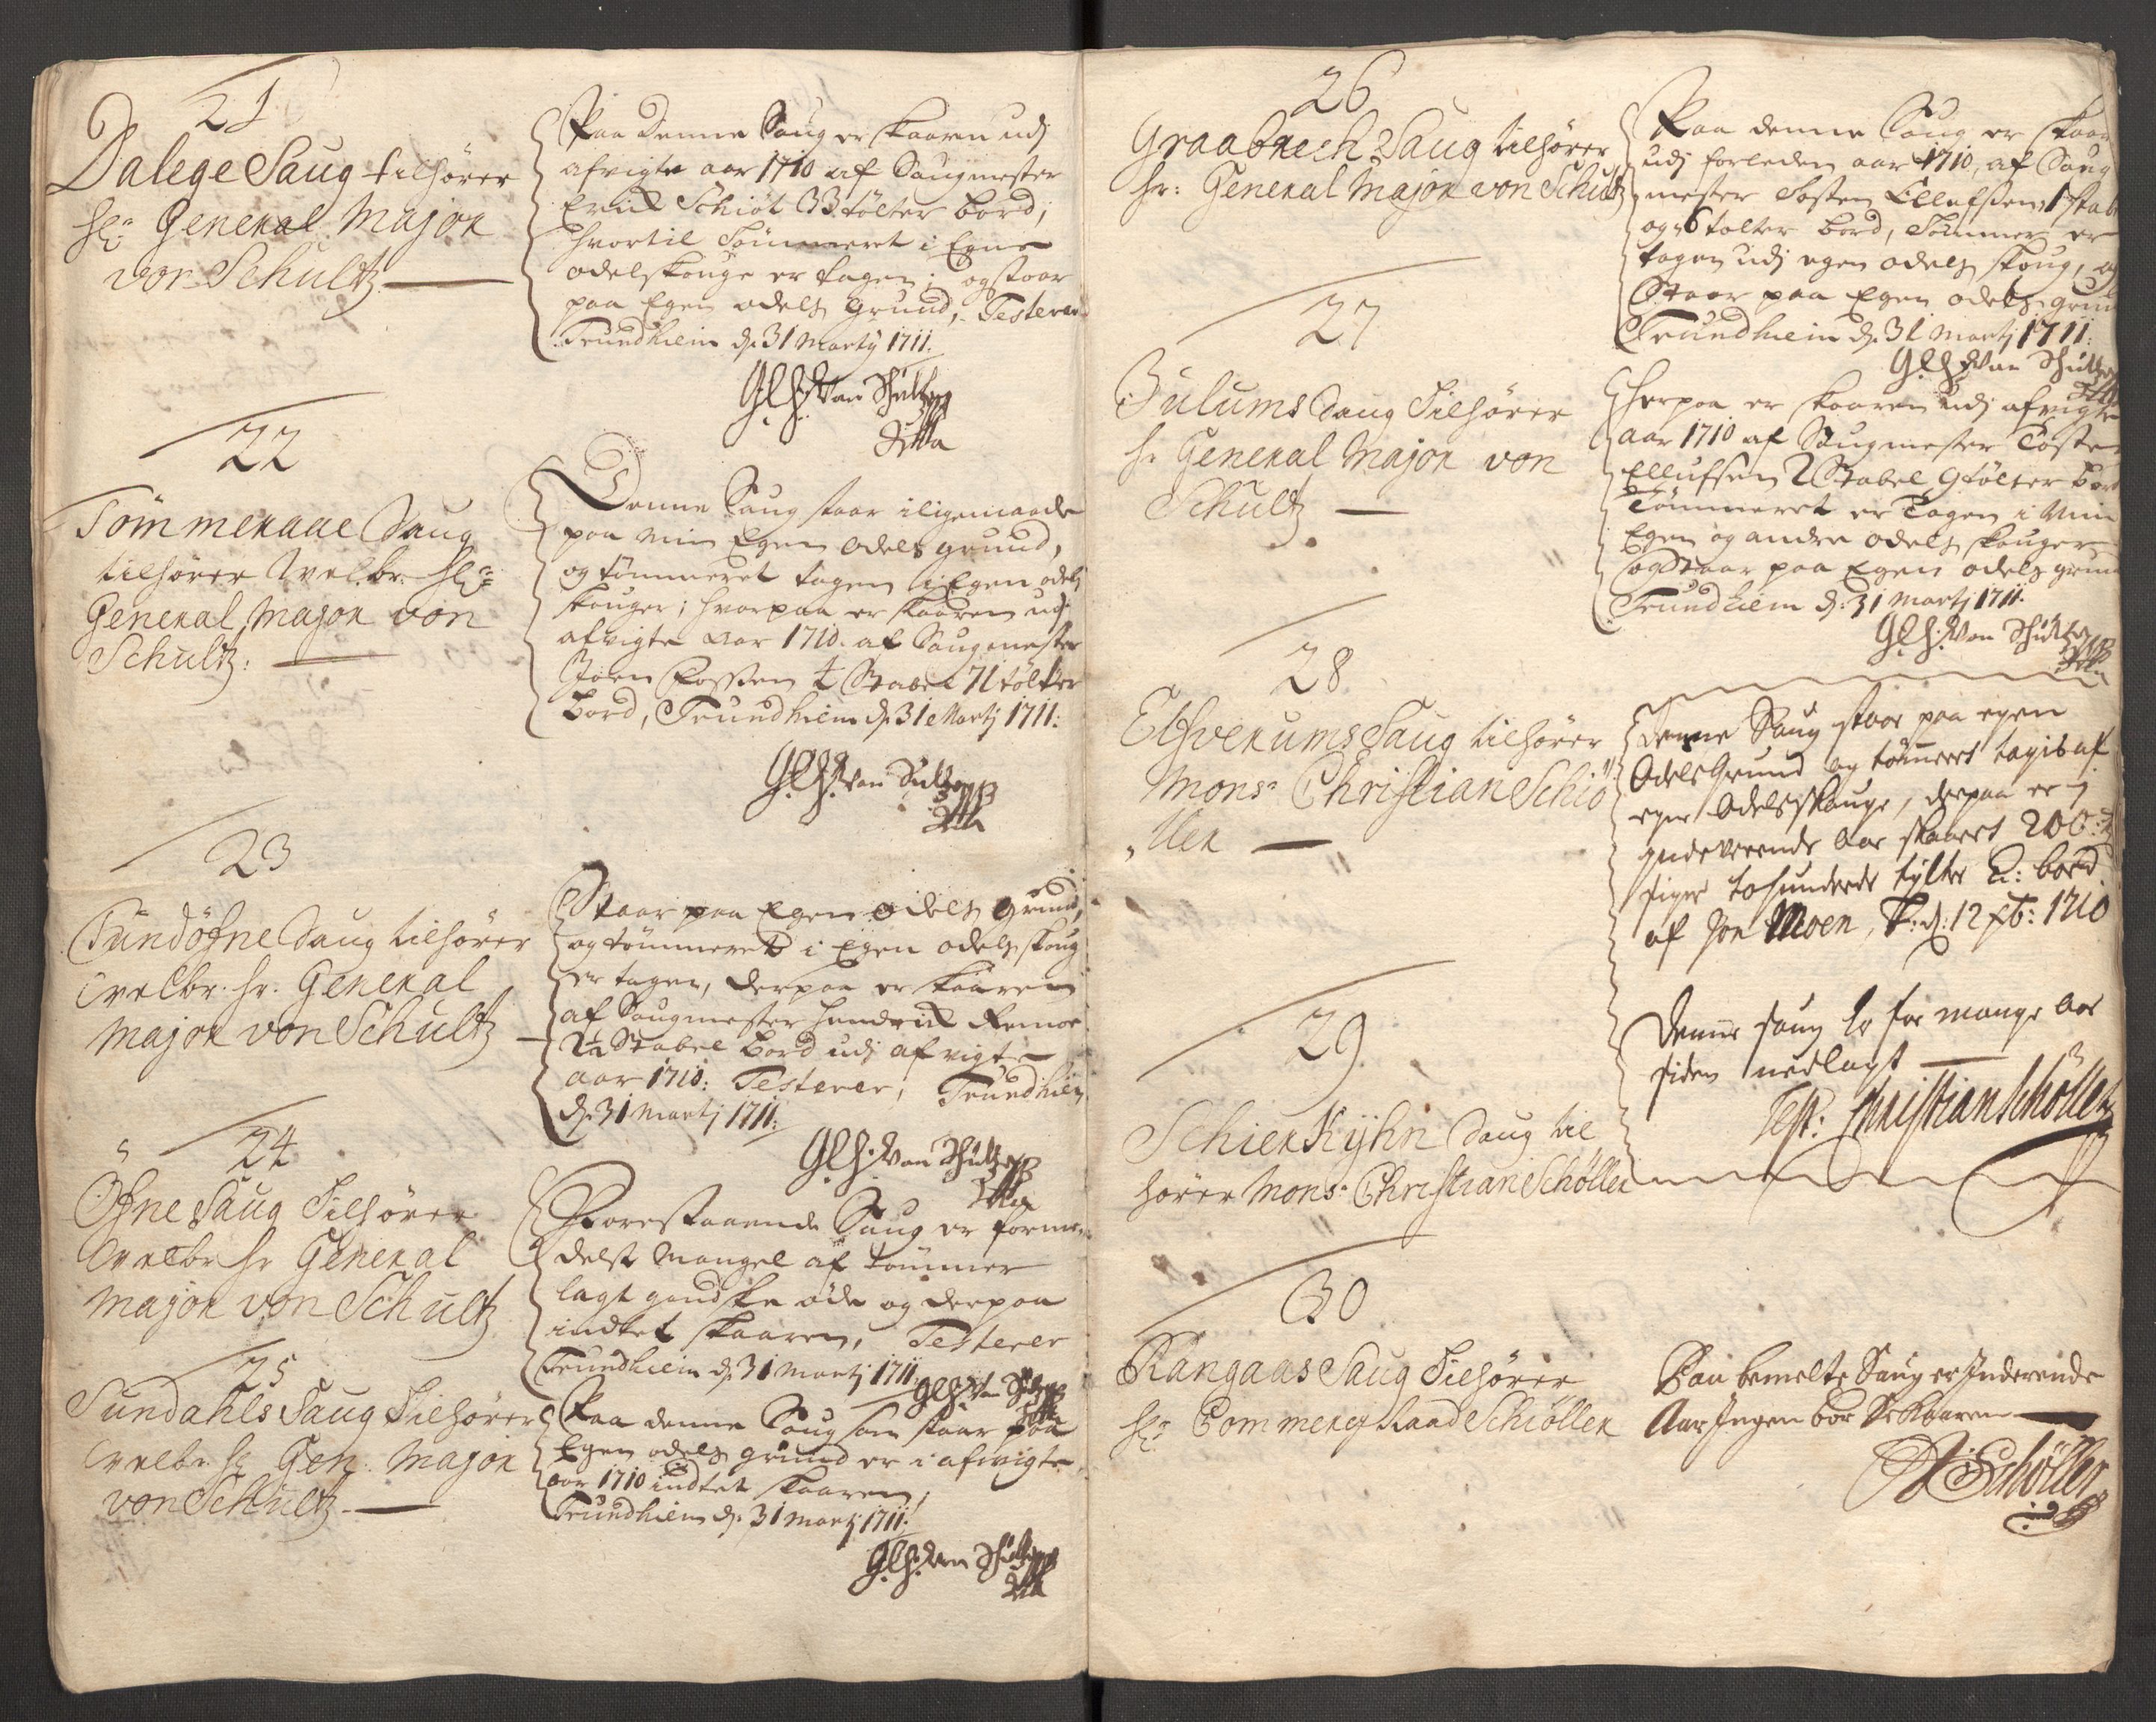 21
Dalege Saug tilhører
Hr: General Major
von Schultz
Paa denne Saug er skaaren udj
afvigte aar 1710 af Saugmester
Erick Schiøt 33 tolter bord,
hvortil Tømmeret i Egne
odelskouge er tagen; og staar
paa Egen odels Grund, Testerer
Trundhiem d. 31 Martij 1711.
22
Tømmeraae Saug
tilhører Velbr. Hr:
General Major von
Schultz:
Denne Saug staar iligemaade
paa min Egen odels grund,
og tømmeret tagen i Egen odels
skouger; hvorpaa er skaaren udj
afvigte aar 1710. af Saugmester
Joen 1 Stabel 71 tolter
bord, Trundhiem d. 31 Martij 1711:
23
Tundøfne Saug tilhører
velbr. hr. General
Major von Schultz
Staar paa Egen odels grund,
og tømmeret i Egen odels skoug
er tagen, derpaa er skaaren
af Saugmester Hendrick
2½ Stabel bord udj afvigte
aar 1710: Testerer, Trundhiem
d. 31 Martij 1711:
24
Ofne Saug Tilhører
velbr hr General
Major von Schultz
Forestaaende Saug er forme-
delst Mangel af tømmer
lagt gandske øde og derpaa
indtet skaaren, Testerer
Trundhiem d. 31 Martij 1711
25
Sundahls Saug Tilhører
velbr. hr Gen: Major
von Schultz
Paa denne Saug som staar paa
Egen odels grund er i afvigte
aar 1710 indtet skaaren,
Trundhiem d. 31 Martij 1711:
26
Graabrech Saug tilhører
hr: General Major von Schultz
Paa denne Saug er skaar
udj forleden aar 1710, af Saug
mester Tosten Ellefssen, 1 stab
og 6 tolter bord, Tømmer er
tagen udj egen odels skoug, og
Staar paa Egen odels grun
Trundhiem d. 31 Martij 1711:
27
Bulums Saug Tilhører
hr General Major von
Schultz
Herpaa er skaaren udj afvigte
aar 1710 af Saugmester Toste
Ellufssen 2 Stabel 9 tolter bor
Tømmeret er Tagen i Min
Egen og andre odels skouger
og Staar paa Egen odels grun
Trundhiem d: 31 Martij 1711.
28
Elsverums Saug tilhører
Mons: Christian Schiø
ller
Denne Saug staar paa egen
Odels Grund og tømeret tagis af
egen Odelsskouge, derpaa er i
indeverende Aar skaaret 200:
siger tohunderde tylter bord
af Jon Moen, d: 12 1710
29
Schierkyhn Saug til
hører Mons: Christian Schøller
Denne saug er for mange Aar
siden nedlagt
Test: Christian Schøller
30
Rangaas Saug Tilhører
Hr: Commerce Raad Schiøller
Paa bemelte Saug er Inderende
Aar Ingen bor Skaaren
Schøller